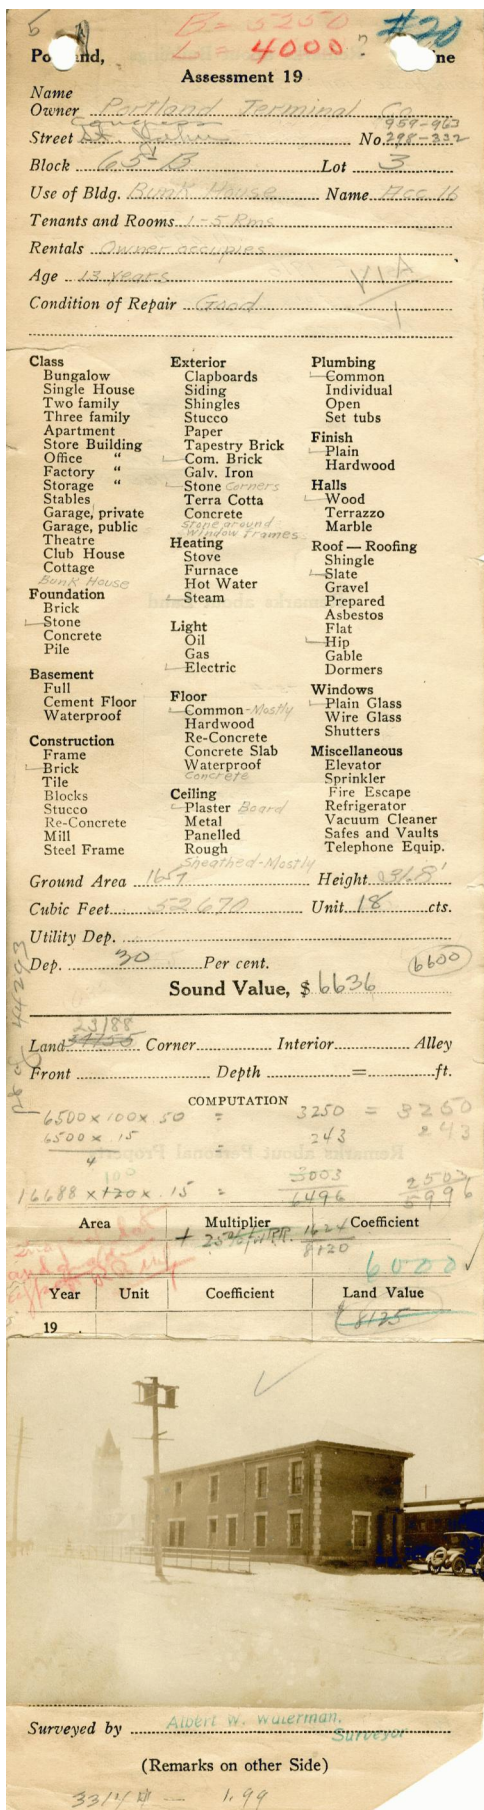 5
B = 5250
L = 4000 ?
#20
Po nd, ne
Assessment 19
Name
Owner Portland Terminal Co
Congress 959-963
Street St. John No. 298-332
Block 65 B Lot 3
Use of Bldg. Bunk House Name Acc 16
Tenants and Rooms 1-5 Rms
Rentals Owner occupies
Age 13 years
Condition of Repair Good
Class
Bungalow
Single House
Two family
Three family
Apartment
Store Building
Office "
Factory "
Storage "
Stables
Garage, private
Garage, public
Theatre
Club House
Cottage
Bunk House
Foundation
Brick
Stone
Concrete
Pile
Basement
Full
Cement Floor
Waterproof
Construction
Frame
Brick
Tile
Blocks
Stucco
Re-Concrete
Mill
Steel Frame
Exterior
Clapboards
Siding
Shingles
Stucco
Paper
Tapestry Brick
Com. Brick
Galv. Iron
Stone Corners
Terra Cotta
Concrete
Stone around
Window Frames
Heating
Stove
Furnace
Hot Water
Steam
Light
Oil
Gas
Electric
Floor
Common-Mostly
Hardwood
Re-Concrete
Concrete Slab
Waterproof
Concrete
Ceiling
Plaster Board
Metal
Panelled
Rough
Sheathed-Mostly
Plumbing
Common
Individual
Open
Set tubs
Finish
Plain
Hardwood
Halls
Wood
Terrazzo
Marble
Roof — Roofing
Shingle
Slate
Gravel
Prepared
Asbestos
Flat
Hip
Gable
Dormers
Windows
Plain Glass
Wire Glass
Shutters
Miscellaneous
Elevator
Sprinkler
Fire Escape
Refrigerator
Vacuum Cleaner
Safes and Vaults
Telephone Equip.
Ground Area Height 31.8'
Cubic Feet 52670 Unit 18 cts.
Utility Dep.
Dep. 30 Per cent. 6600
Sound Value, $ 6636
23188
Land Corner Interior Alley
Front Depth = ft.
COMPUTATION
6500 x 100 x .50 = 3250 = 3250
6500 x .15 = 243 243
4
100
16688 x 120 x .15 = 3003 2503
6496 5996
Area Multiplier Coefficient
+ 25% 1624
8120
6000
Year Unit Coefficient Land Value
19 8125
Surveyed by Albert W. Waterman.
Surveyor
(Remarks on other Side)
1.99